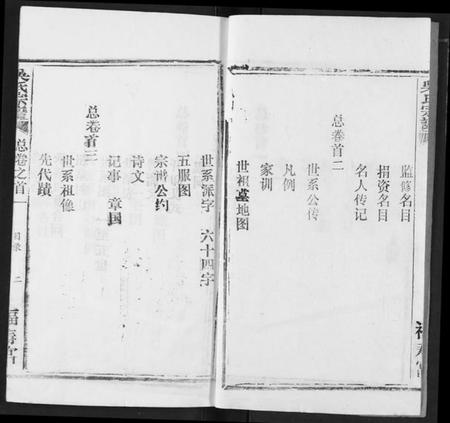 监修名目
捐资名目
名人传记
总卷首二
世系公传
凡例
家训
世祖墓地图
世系派字 六十四字
五服图
宗谱公约
诗文
记事 章国
总卷首三
世系祖像
先代蹟
吴氏宗谱
总卷之首一
目录
二